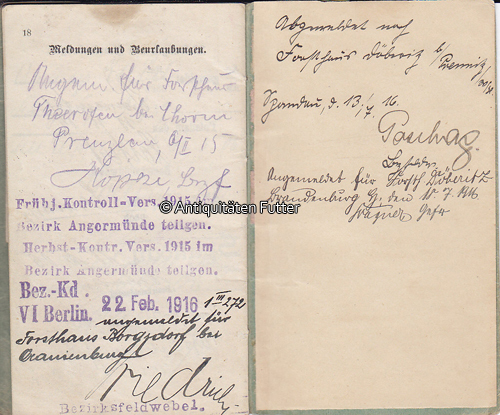 18
Meldungen und Beurlaubungen.
Angem. für Forsthaus
Theerofen bei Chorin
Prenzlau, 9/II 15
Frühj. Kontroll-Vers. 1915 im
Bezirk Angermünde teilgen.
Herbst-Kontr. Vers. 1915 im
Bezirk Angermünde teilgen.
Bez.-Kd.
VI Berlin. 22 Feb. 1916 1 III 272
angemeldet für
Forsthaus Borgsdorf bei
Oranienburg
Bezirksfeldwebel.
Abgemeldet nach
Forsthaus Döberitz b/
Premnitz
Spandau, d. 13/7. 16.
Bezfeldw.
Angemeldet für Forsth. Döberitz
Brandenburg H, den 7. 16
Gefr
© Antiquitäten Futter